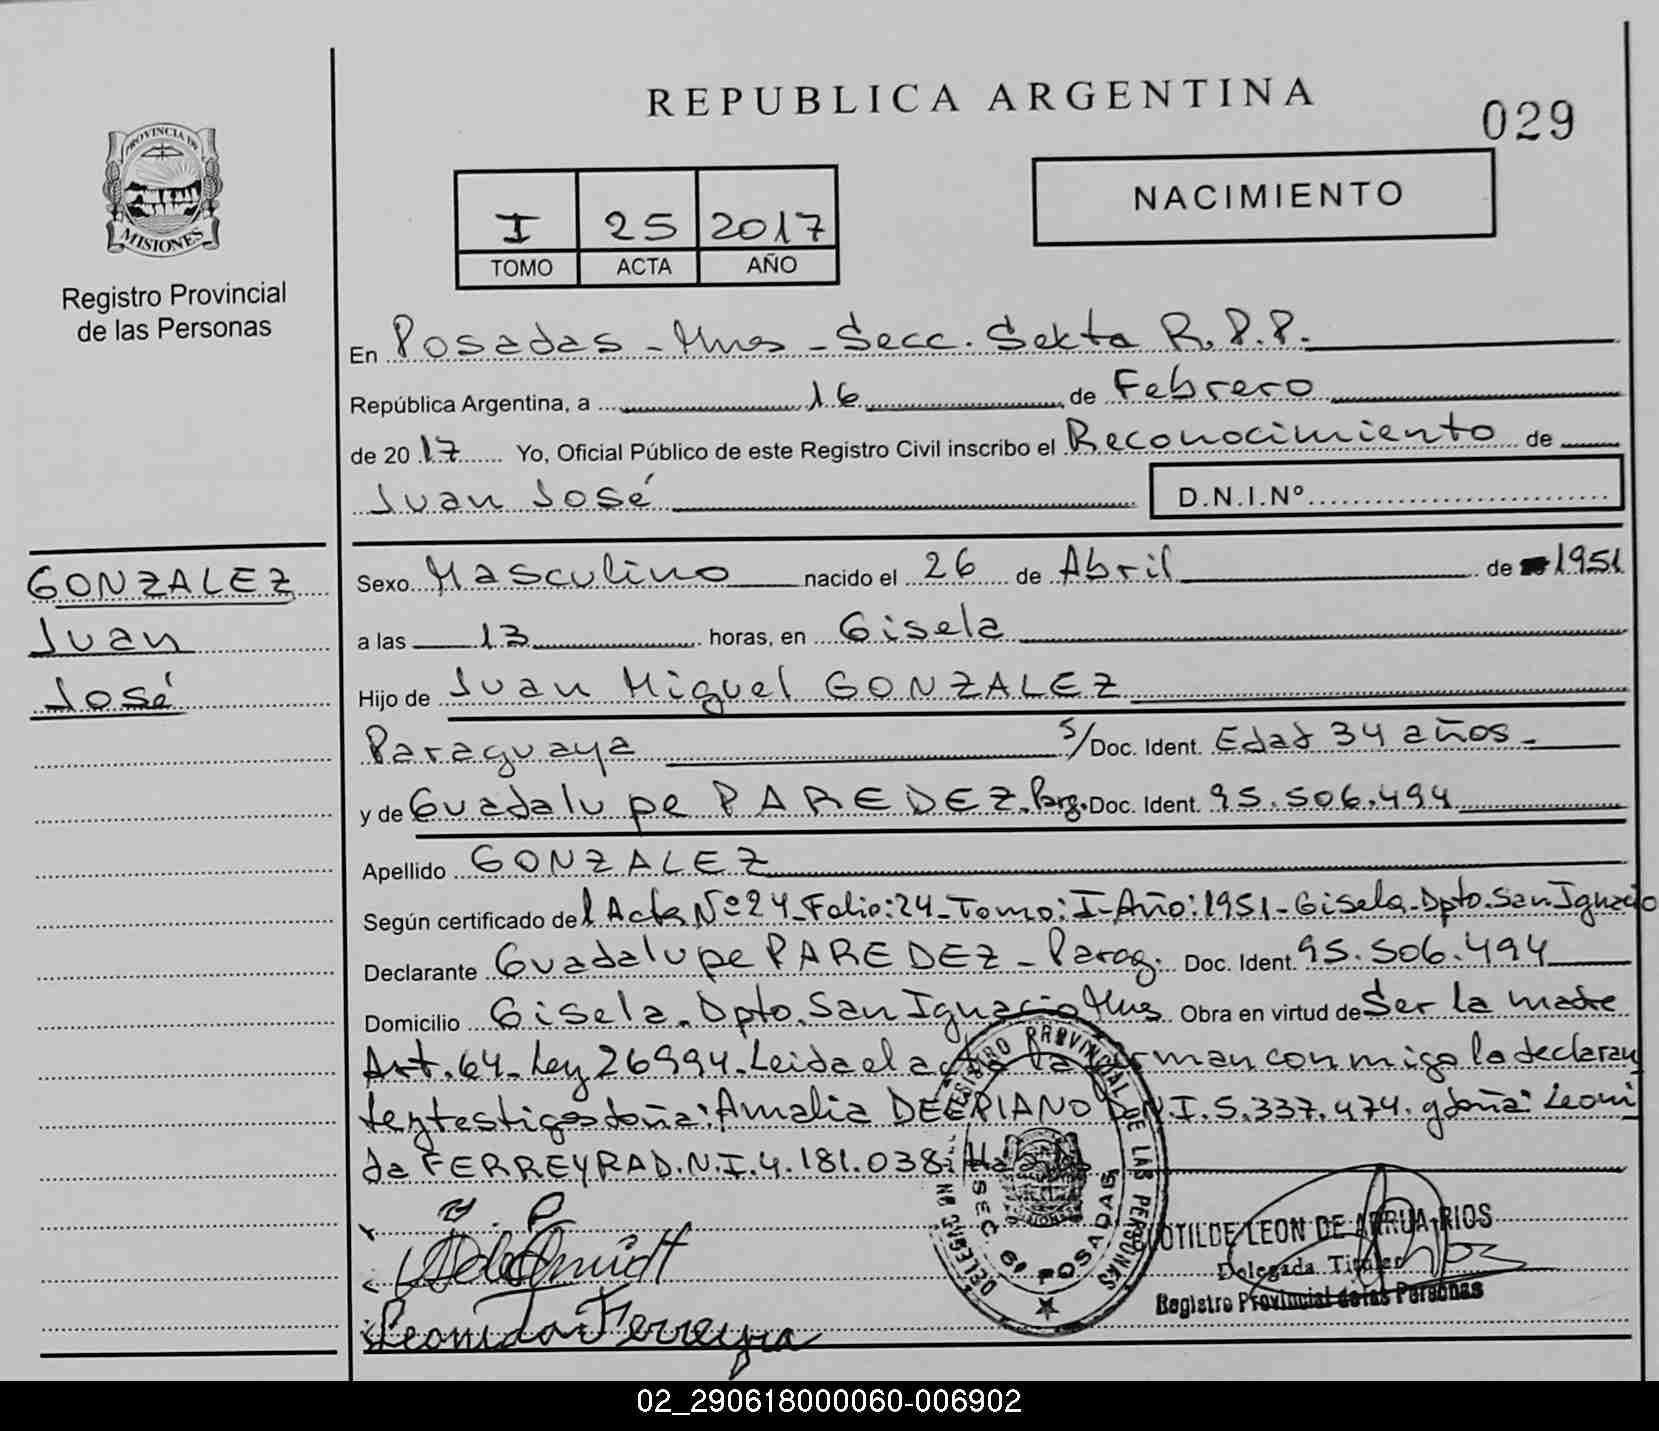 REPUBLICA ARGENTINA
029
PROVINCIA DE
MISIONES
Registro Provincial
de las Personas
NACIMIENTO
I 25 2017
TOMO ACTA AÑO
En Posadas - Mnes - Secc. Sexta R.P.P.
República Argentina, a 16 de Febrero
de 2017 Yo, Oficial Público de este Registro Civil inscribo el Reconocimiento de
Juan José D.N.I.Nº
GONZALEZ
Juan
José
Sexo Masculino nacido el 26 de Abril de 1951
a las 13 horas, en Gisela
Hijo de Juan Miguel GONZALEZ
Paraguaya s/Doc. Ident. Edad 34 años -
y de Guadalupe PAREDEZ. Parg. Doc. Ident. 95.506.494
Apellido GONZALEZ
Según certificado del Acta Nº24-Folio:24-Tomo:I-Año:1951-Gisela-Dpto.San Ignacio
Declarante Guadalupe PAREDEZ - Parag. Doc. Ident. 95.506.494
Domicilio Gisela. Dpto. San Ignacio Mnes Obra en virtud de Ser la madre
Art. 64 - Ley 26994. Leida el acta la firman conmigo la declaran
te y testigos doña: Amalia D.N.I. 5.337.474. y doña: Leoni
da FERREYRA D.N.I. 4.181.038.
REGISTRO PROVINCIAL DE LAS PERSONAS
DELEGAC. Nº
SEC. 6ª POSADAS
G. P.
Leonida Ferreyra
OTILDE LEON DE ARRUA RIOS
Delegada Titular
Registro Provincial de las Personas
02_290618000060-006902